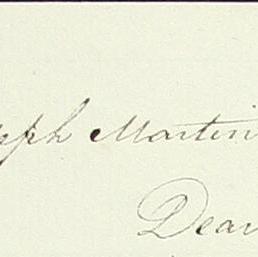 seph Martin
Dear